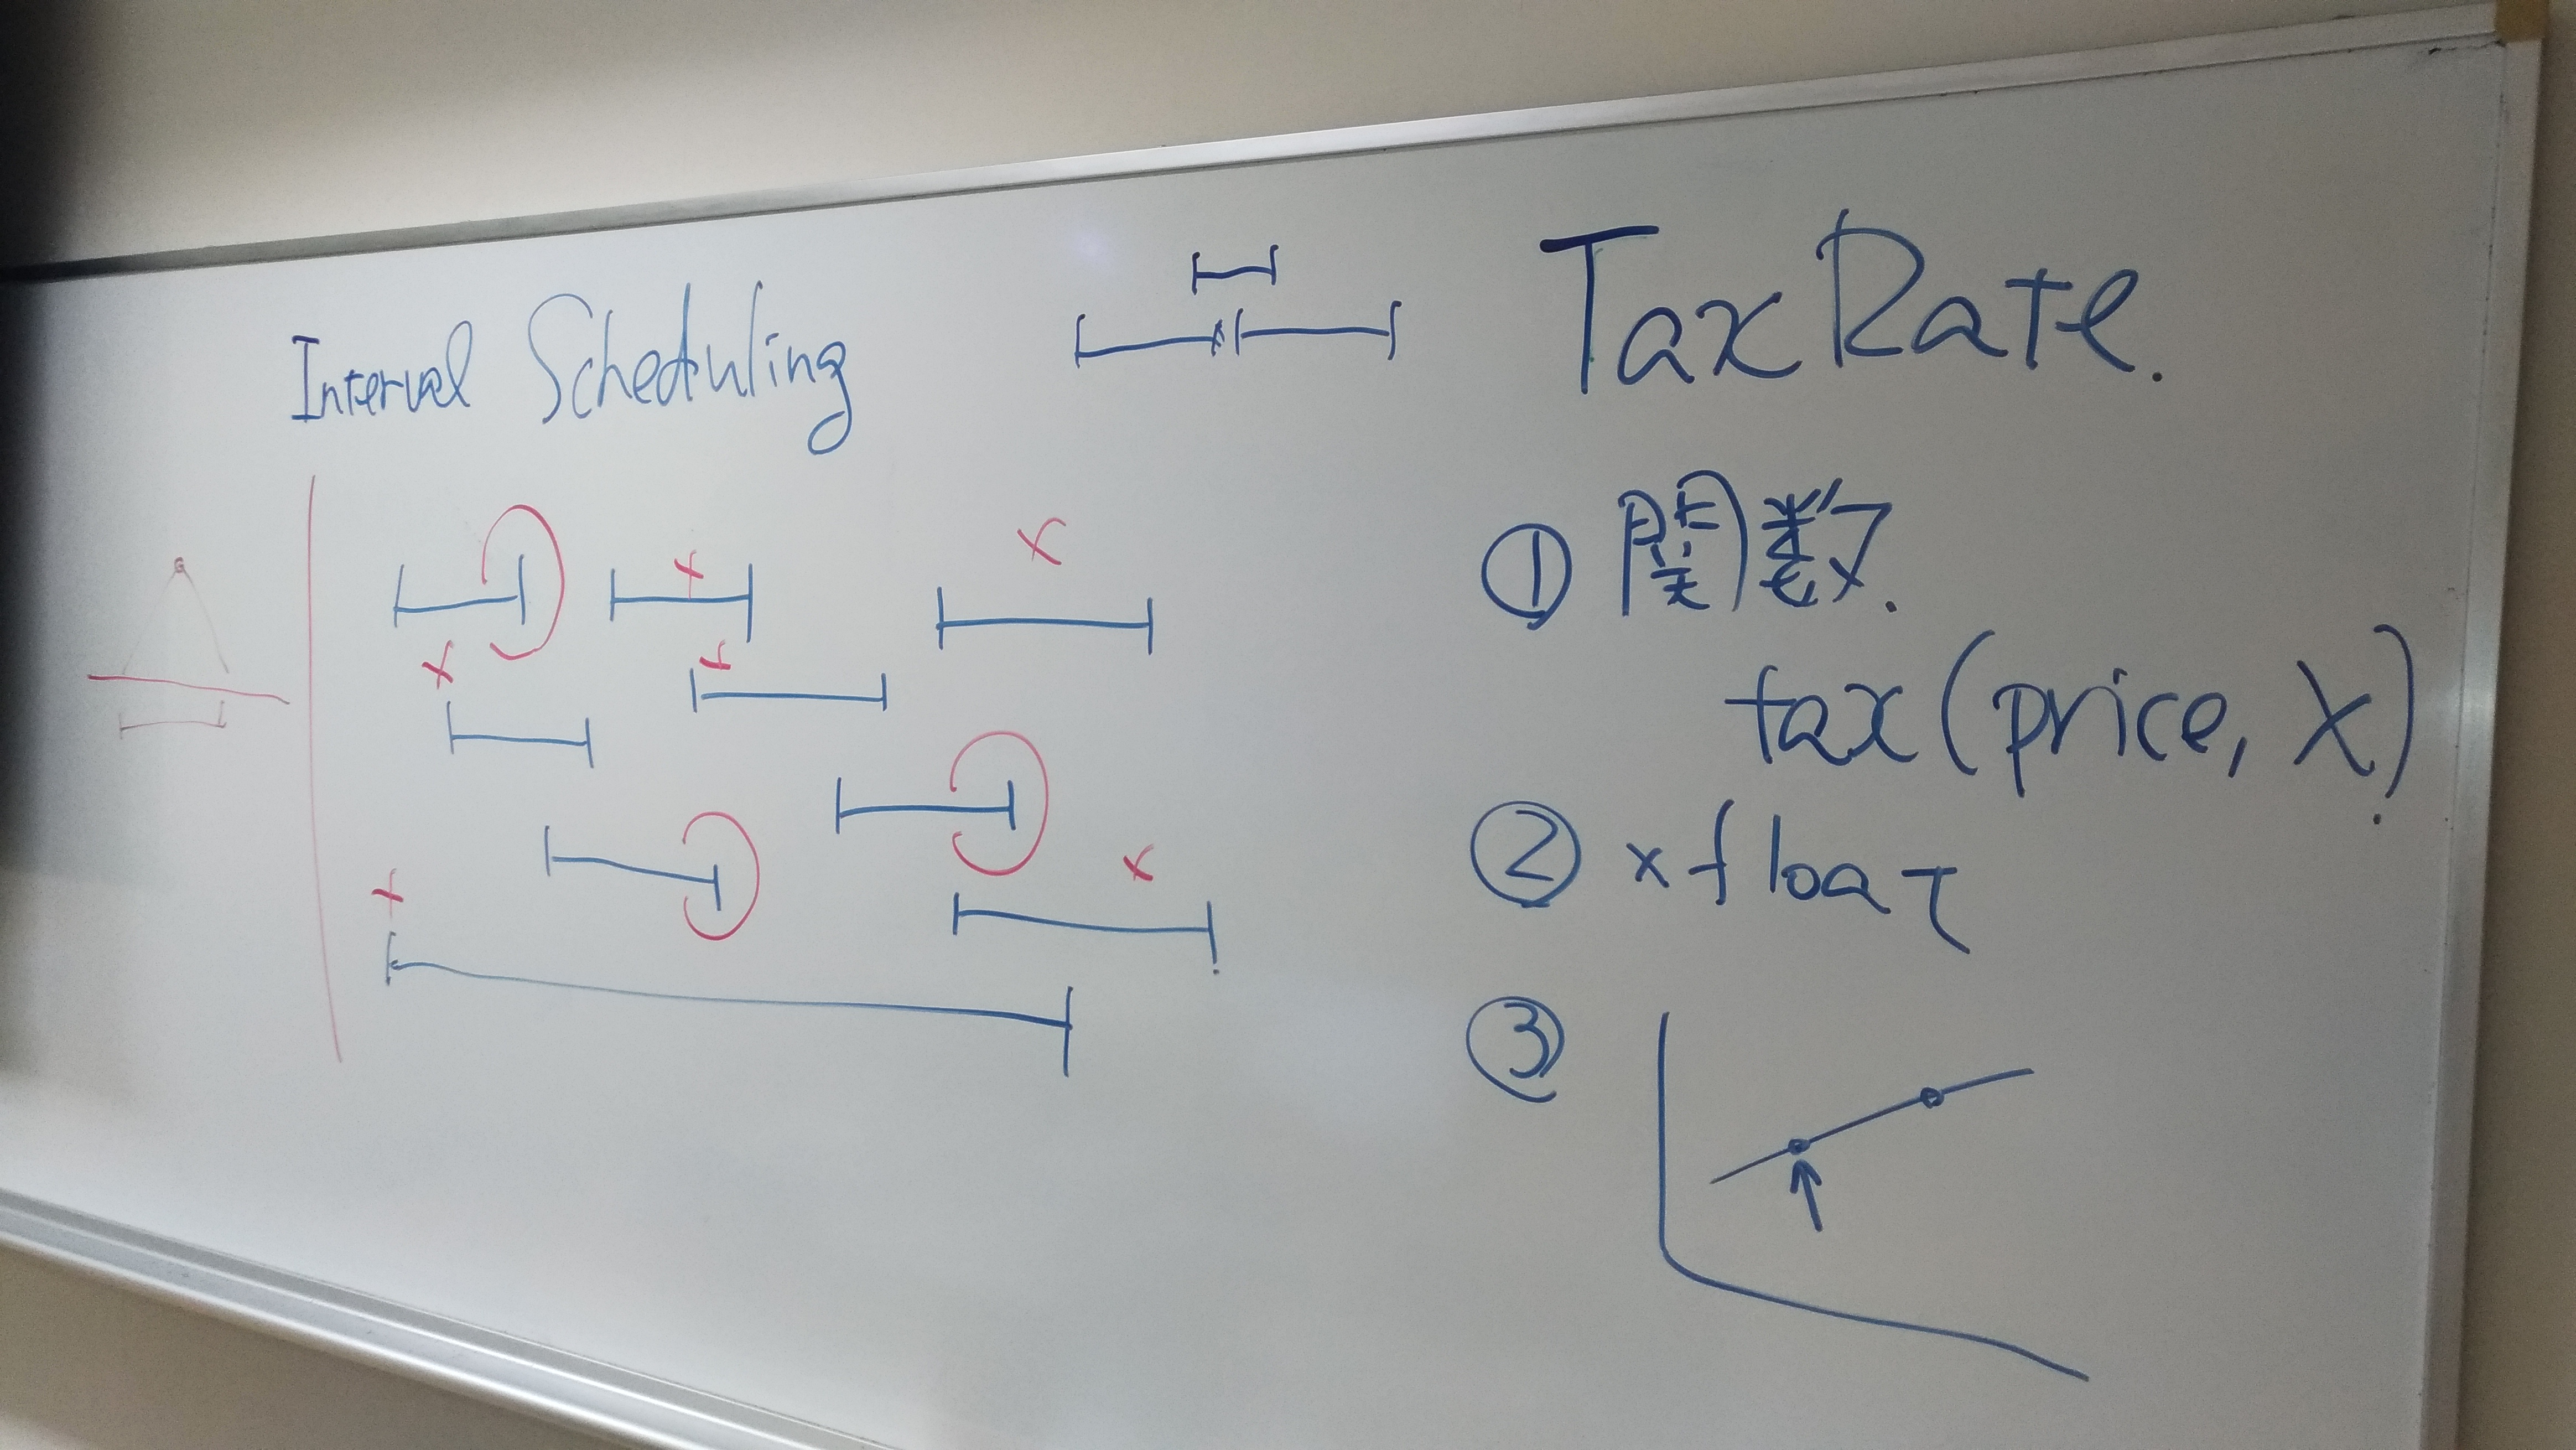 Interval Scheduling
Tax Rate.
① 関数.
tax(price, x).
② x float
③